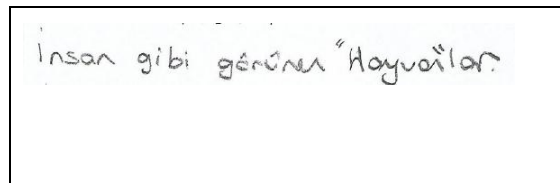 İnsan gibi görünen "Hayvan"lar.